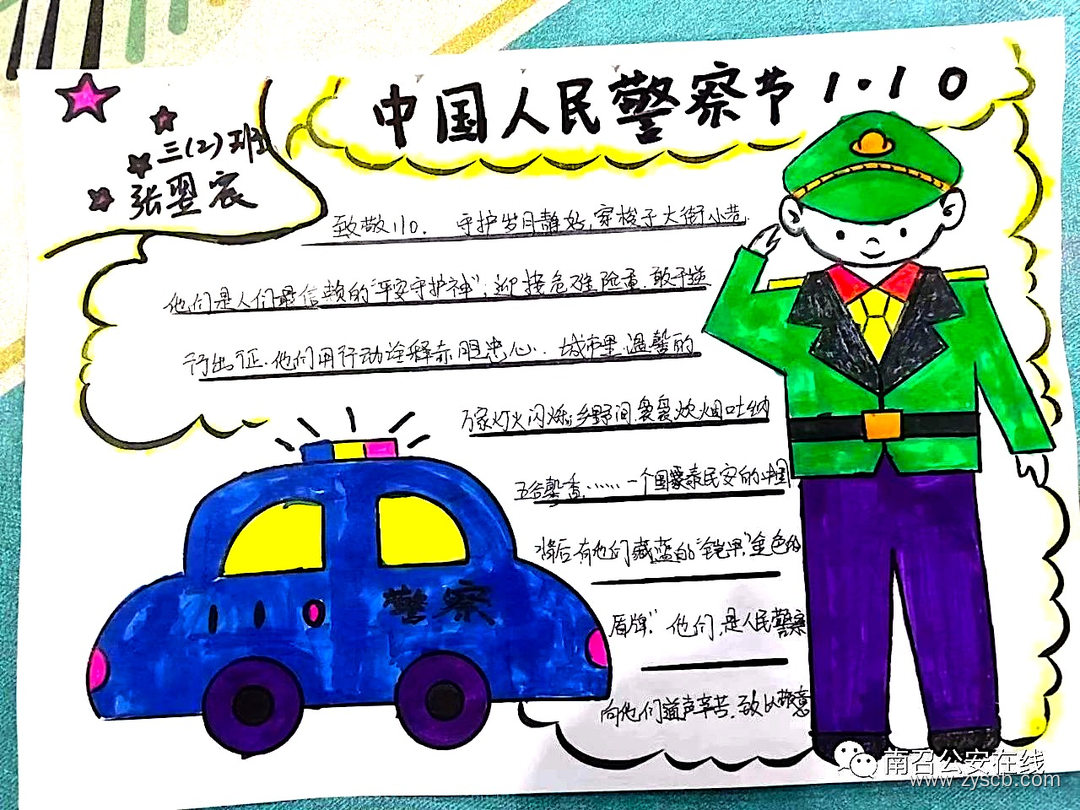 中国人民警察节1.10
三(2)班
张翌宸
致敬110. 守护岁月静好,穿梭于大街小巷.
他们是人们最信赖的"平安守护神",迎接危难险重.敢于逆
行出征.他们用行动诠释赤胆忠心. 城市里温馨的
万家灯火闪烁;乡野间,袅袅炊烟吐纳
五谷馨香,……一个国泰民安的中国
背后有他们藏蓝的"铠甲",金色的
盾牌". 他们,是人民警察
向他们道声辛苦.致以敬意
警察
南召公安在线
www.zyscb.com